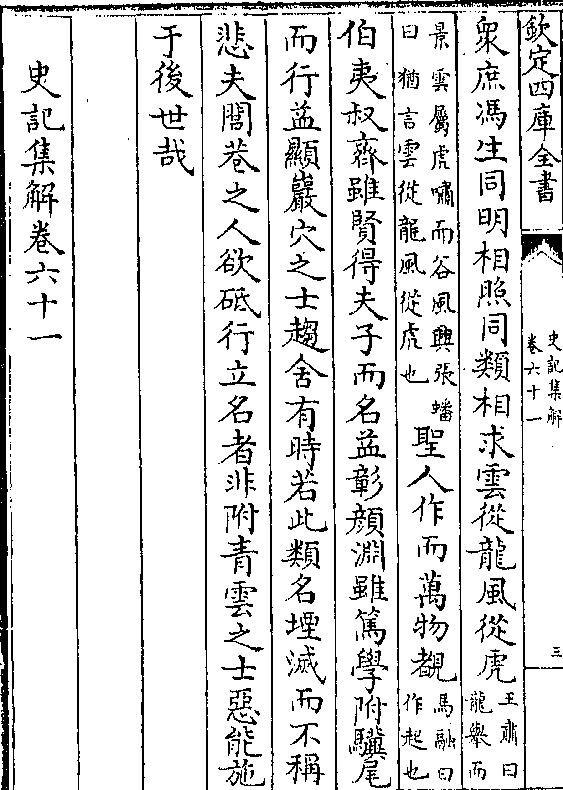 欽定四庫全書
史記集解
卷六十一
三
衆庶馮生同明相照同類相求雲從龍風從虎王肅曰龍舉而
景雲屬虎嘯而谷風興張璠曰猶言雲從龍風從虎也聖人作而萬物覩馬融曰作起也
伯夷叔齊雖賢得夫子而名益彰顔淵雖篤學附驥尾
而行益顯巖穴之士趨舍有時若此類名堙滅而不稱
悲夫閭巷之人欲砥行立名者非附青雲之士惡能施
于後世哉
史記集解卷六十一